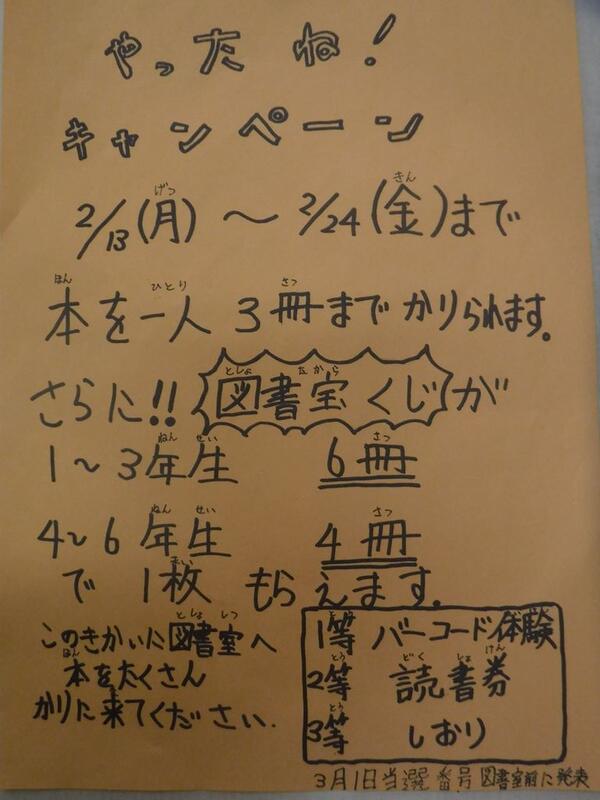 やったね！
キャンペーン
2/13(月)～2/24(金)まで
本を一人3冊までかりられます。
さらに!!図書宝くじが
1～3年生 6冊
4～6年生 4冊
で1枚もらえます。
このきかいに図書室へ
本をたくさん
かりに来てください.
1等 バーコード体験
2等 読書券
3等 しおり
3月1日当選番号図書室前に発表